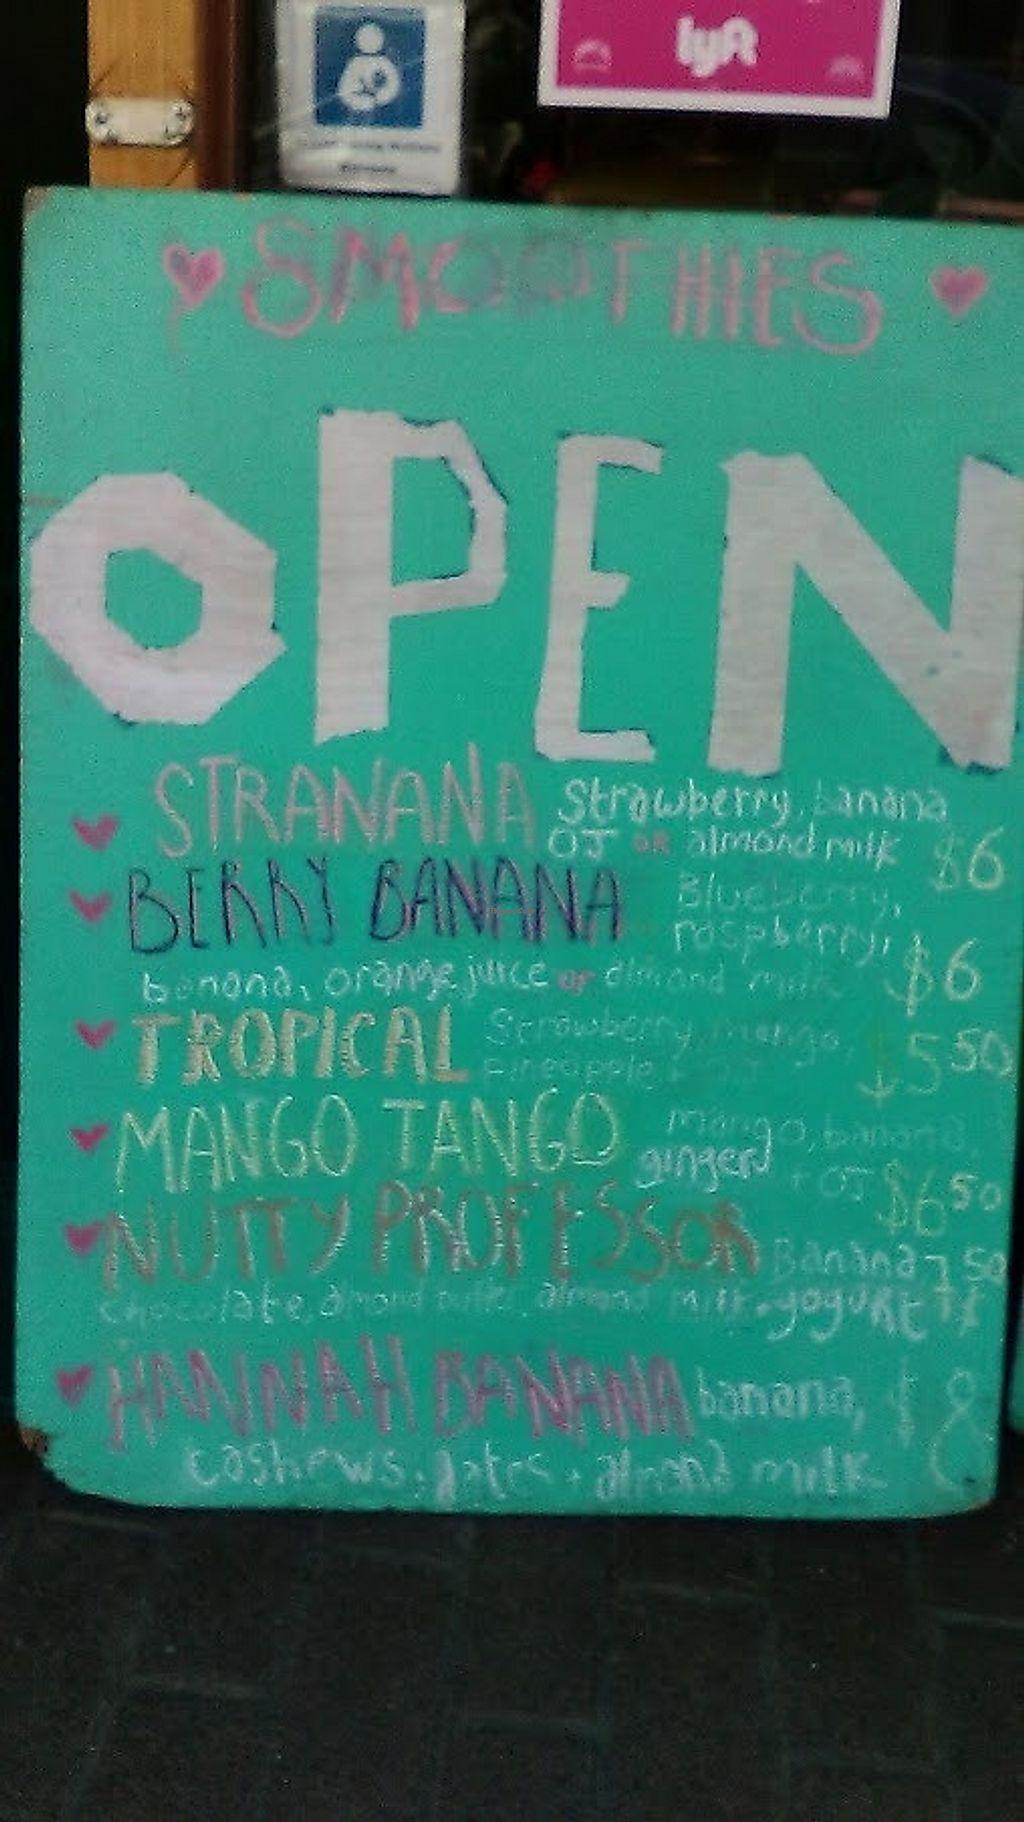 lyft
SMOOTHIES
OPEN
STRANANA Strawberry, banana
OJ OR almond milk $6
BERRY BANANA Blueberry,
raspberry, $6
banana, orange juice or almond milk
TROPICAL Strawberry, mango, $5 50
pineapple + OJ
MANGO TANGO mango, banana,
ginger + OJ $6 50
NUTTY PROFESSOR Banana 7 50
chocolate, almond butter, almond milk, yogurt
HANNAH BANANA banana, $8
cashews, dates + almond milk